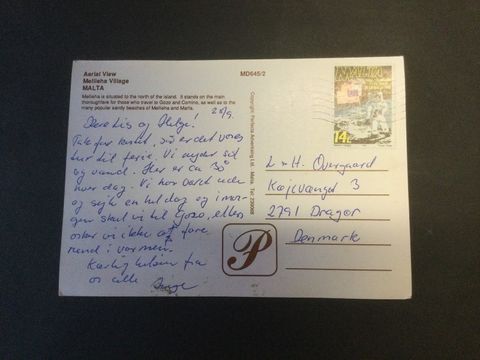 Aerial View
Mellieha Village
MALTA
Mellieha is situated to the north of the island. It stands on the main
thoroughfare for those who travel to Gozo and Comino, as well as to the
many popular sandy beaches of Mellieha and Marfa.
MD645/2
Kære Lis og Helge!
Tak for kortet, så er det vores
tur til ferie. Vi nyder sol
og vand. Her er ca 30°
hver dag. Vi har været ude
og sejle en hel dag og i mor-
gen skal vi til Gozo, ellers
orker vi ikke at fare
rundt i varmen.
Kærlig hilsen fra
os alle
Copyright: Perfecta Advertising Ltd. Malta. Tel:
MALTA
14c
L + H. Overgaard
Køjevænget 3
2791 Dragør
Denmark
P